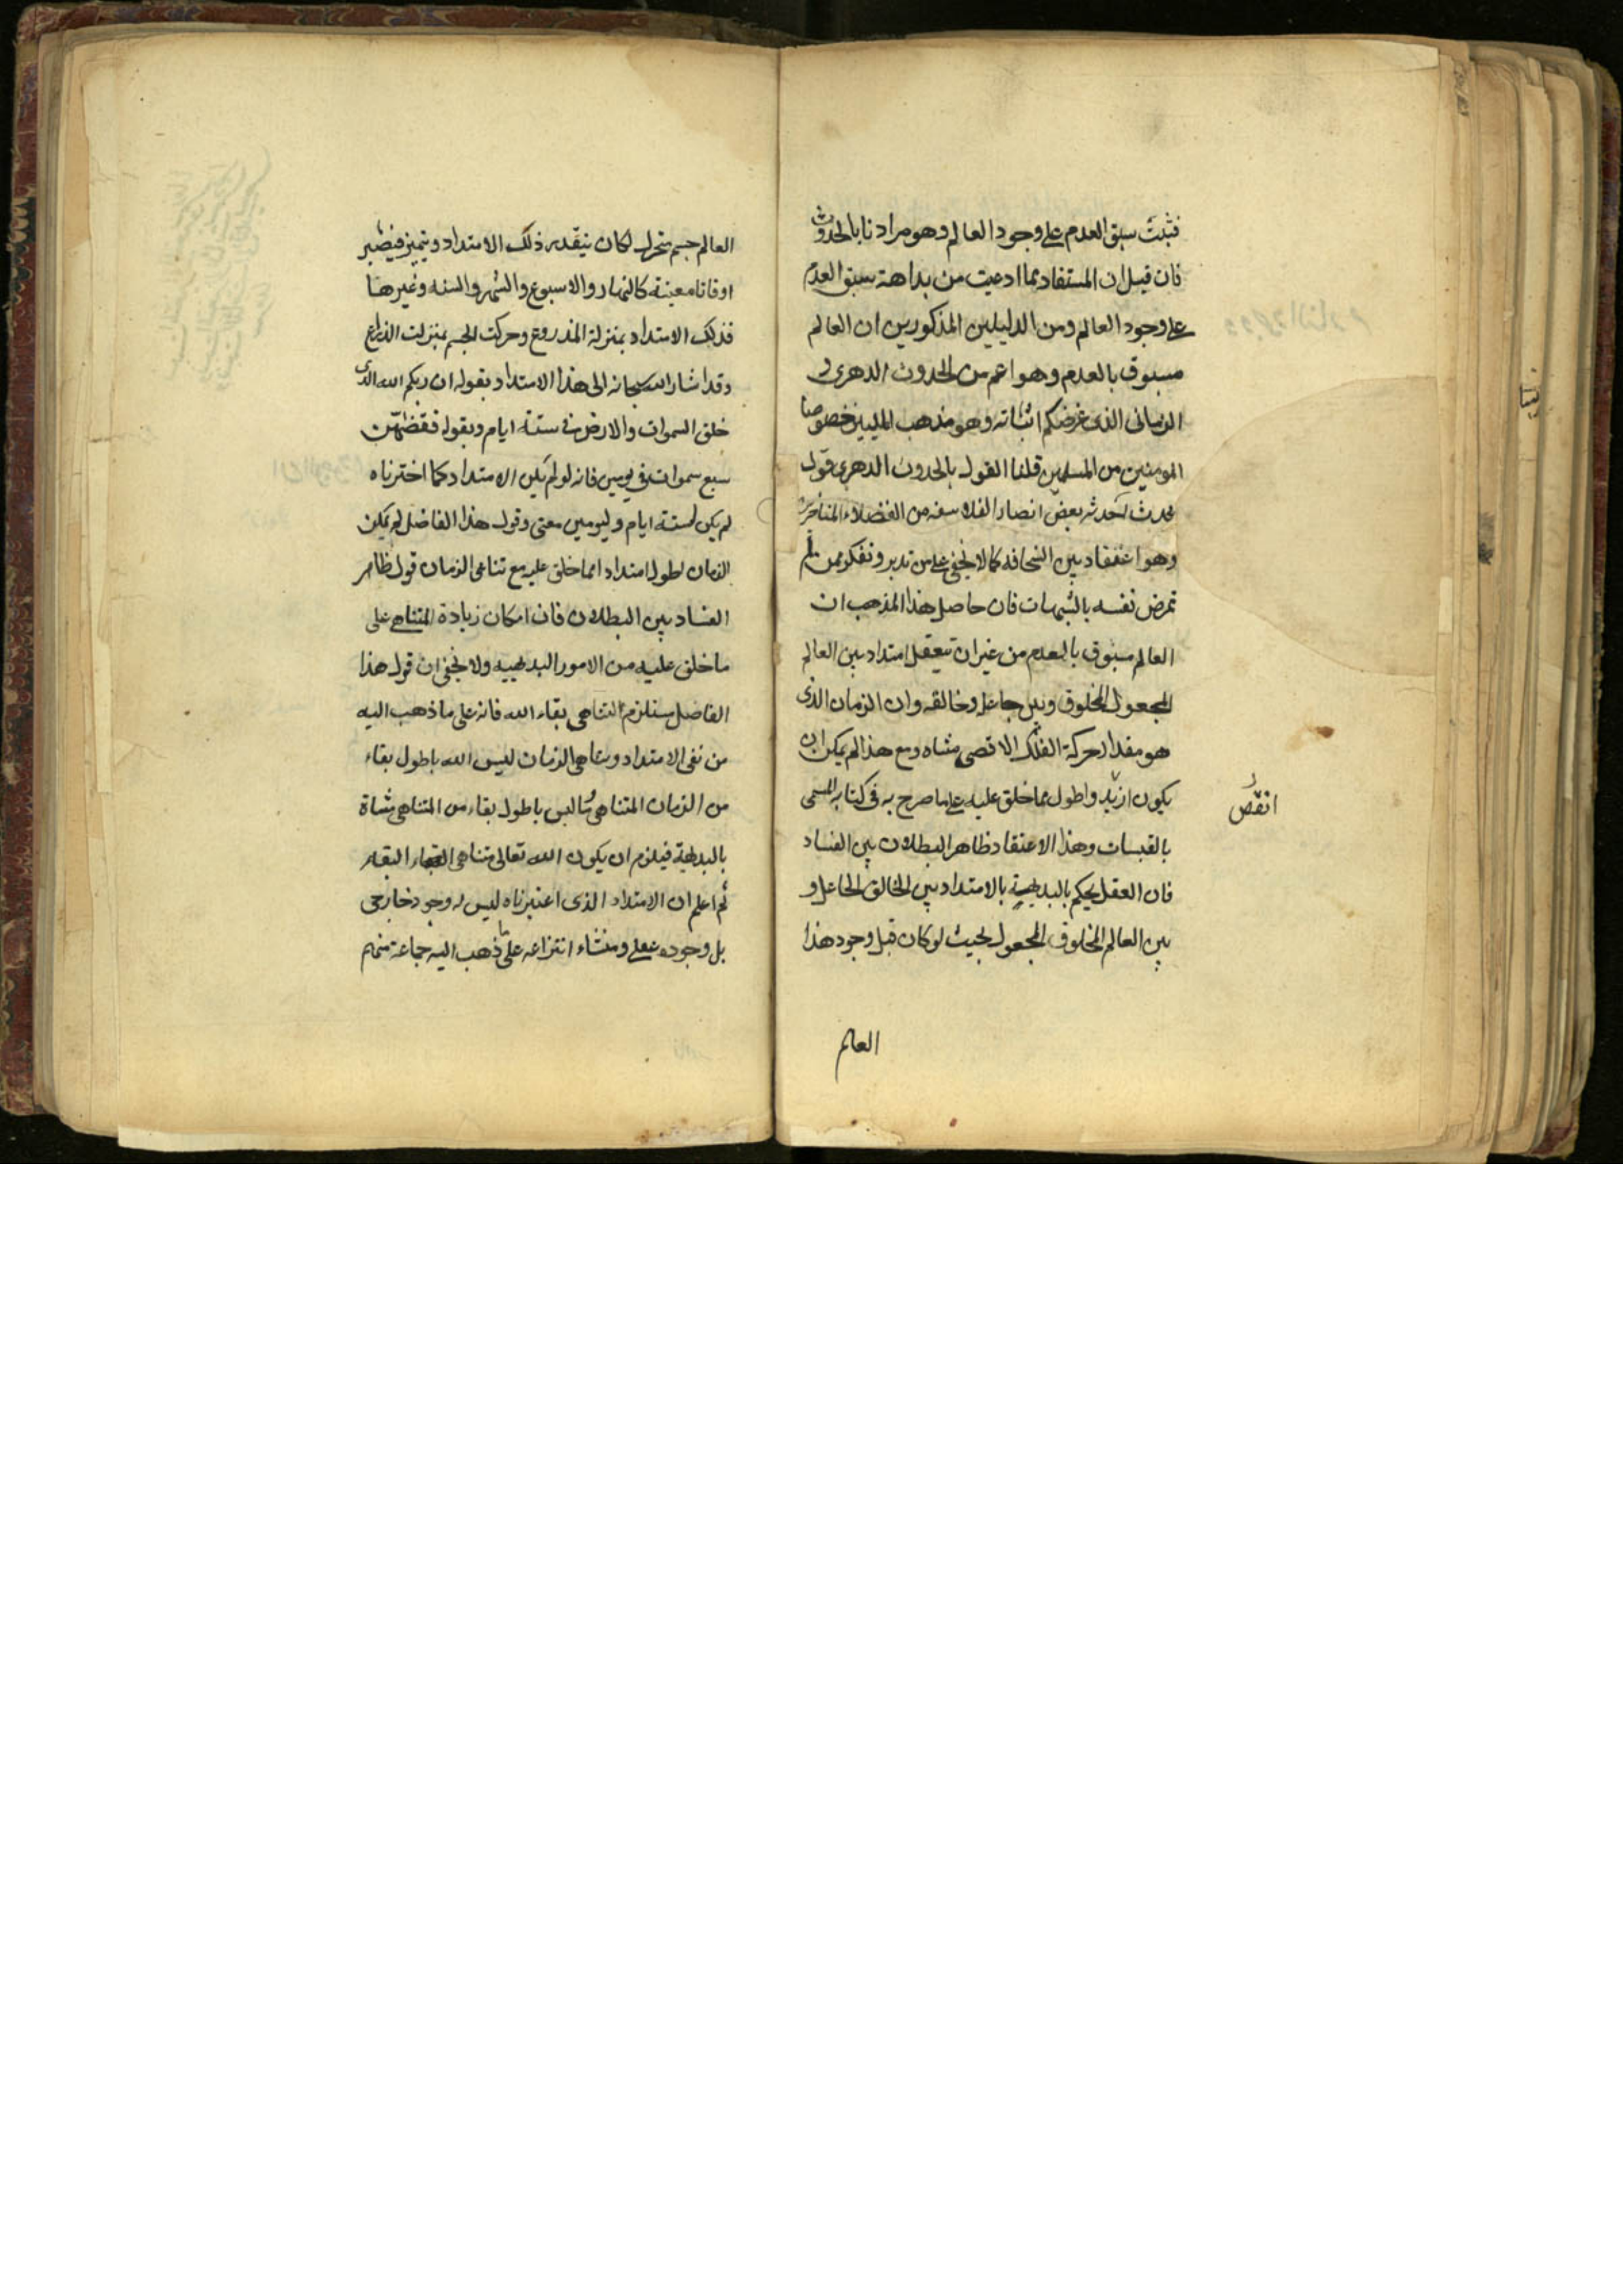 فثبت سبق العدم على وجود العالم وهو مرادنا بالحدوث
فان قيل ان المستفاد مما ادعيت من بداهة سبق العدم
على وجود العالم ومن الدليلين المذكورين ان العالم
مسبوق بالعدم وهو اعم من الحدوث الدهري و
الزماني الذى غرضكم اثباته وهو مذهب المليين خصوصا
المومنين من المسلمين قلنا القول بالحدوث الدهرى قول
محدث احدثه بعض انصار الفلاسفه من الفضلاء المتاخرين
وهو اعتقاد بين السخافه كما لا يخفى على من تدبر وتفكر ممن لم
تمرض نفسه بالشبهات فان حاصل هذا المذهب ان
العالم مسبوق بالعدم من غير ان يتعقل امتداد بين العالم
المجعول المخلوق وبين جاعله وخالقه وان الزمان الذى
هو مقدار حركة الفلك الاقصى متناه ومع هذا لم يمكن ان
يكون ازيد واطول مما خلق عليه على ما صرح به فى كتابه المسمى
انقص
بالقبسات وهذا الاعتقاد ظاهر البطلان بين الفساد
فان العقل يحكم بالبديهية بالامتداد بين الخالق الجاعل و
بين العالم المخلوق المجعول بحيث لو كان قبل وجود هذا
العالم
العالم جسم متحرك لكان يتقدر ذلك الامتداد ويتميز فيصير
اوقاتا معينة كالنهار والاسبوع والشهر والسنه وغيرها
فذلك الامتداد بمنزلة المذروع وحركت الجسم بمنزلت الذراع
وقد اشار الله سبحانه الى هذا الامتداد بقوله ان ربكم الله الذى
خلق السموات والارض فى ستة ايام وبقوله فقضيهن
سبع سموات فى يومين فانه لو لم يكن الامتداد كما اخترناه
لم يكن لستة ايام وليومين معنى وقول هذا الفاضل لم يمكن
الزمان اطول امتدادا مما خلق عليه مع تناهى الزمان قول ظاهر
الفساد بين البطلان فان امكان زيادة المتناهى على
ما خلق عليه من الامور البديهيه ولا يخفى ان قول هذا
الفاضل يستلزم التناهى بقاء الله فانه على ما ذهب اليه
من نفى الامتداد وتناهى الزمان ليس الله باطول بقاء
من الزمان المتناهى وما ليس باطول بقاء من المتناهى متناه
بالبديهة فيلزم ان يكون الله تعالى متناهى البقاء
ثم اعلم ان الامتداد الذى اعتبرناه ليس له وجود خارجى
بل وجوده عقلى ومنشاء انتزاعه على ما ذهب اليه جماعة منهم